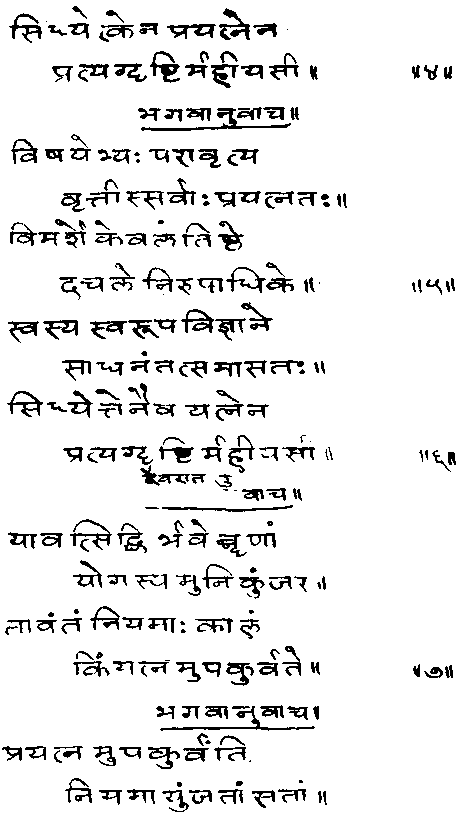 सिध्येत्केन प्रयत्नेन
प्रत्यग्दृष्टिर्महीयसी॥ ॥४॥
भगवानुवाच॥
विषयेभ्यः परावृत्य
वृत्तीस्सर्वाः प्रयत्नतः॥
विमर्शे केवलं तिष्ठे
दचले निरुपाधिके॥ ॥५॥
स्वस्य स्वरूपविज्ञाने
साधनंतत्समासतः॥
सिध्येत्तेनैव यत्नेन
प्रत्यग्दृष्टिर्महीयसी॥ ॥६॥
दैवरात उ
वाच॥
यावत्सिद्धिर्भवेन्नृणां
योगस्य मुनिकुंजर॥
तावंतं नियमाः कालं
किंयत्न मुपकुर्वते॥ ॥७॥
भगवानुवाच।
प्रयत्न मुपकुर्वंति
नियमा युंजतां सतां॥